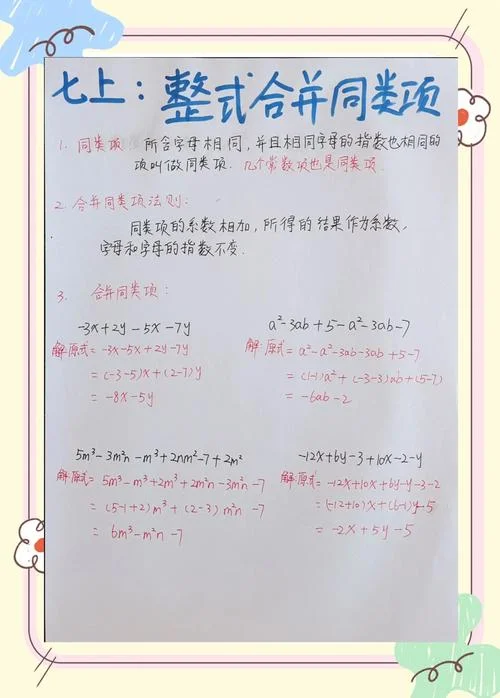 七上：整式合并同类项
1. 同类项：所含字母相同，并且相同字母的指数也相同的
项叫做同类项. 几个常数项也是同类项.
2. 合并同类项法则：
同类项的系数相加，所得的结果作为系数，
字母和字母的指数不变.
3. 合并同类项：
-3x+2y-5x-7y
解:原式=-3x-5x+2y-7y
=(-3-5)x+(2-7)y
=-8x-5y
a²-3ab+5-a²-3ab-7
解:原式=a²-a²-3ab-3ab+5-7
=(1-1)a²+(-3-3)ab+(5-7)
=-6ab-2
5m³-3m²n-m³+2nm²-7+2m³
解:原式=5m³-m³+2m³+2m²n-3m²n-7
=(5-1+2)m³+(2-3)m²n-7
=6m³-m²n-7
-12x+6y-3+10x-2-y
解:原式=-12x+10x+6y-y-3-2
=(-12+10)x+(6-1)y-5
=-2x+5y-5